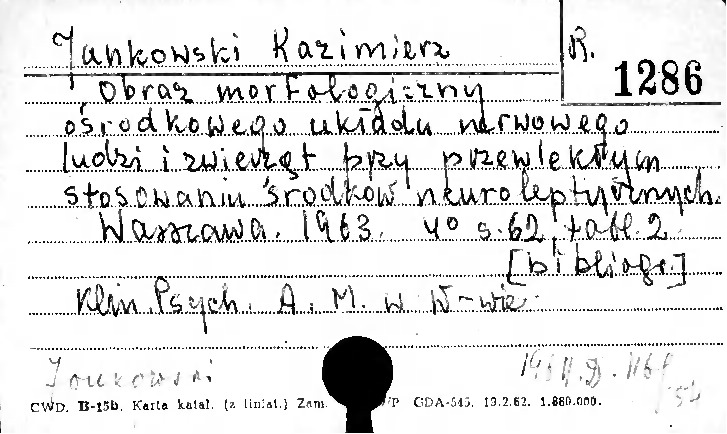 Jankowski Kazimierz
R. 1286
Obraz morfologiczny
ośrodkowego układu nerwowego
ludzi i zwierząt przy przewlekłym
stosowaniu środków neuroleptycznych.
Warszawa. 1963. 4° s. 62, tabl. 2.
[bibliogr.]
Klin. Psych. A. M. w W-wie.
Jankowski
CWD. B-15b. Karta katal. (z liniat.) Zam. GDA-545. 13.2.62. 1.880.000.